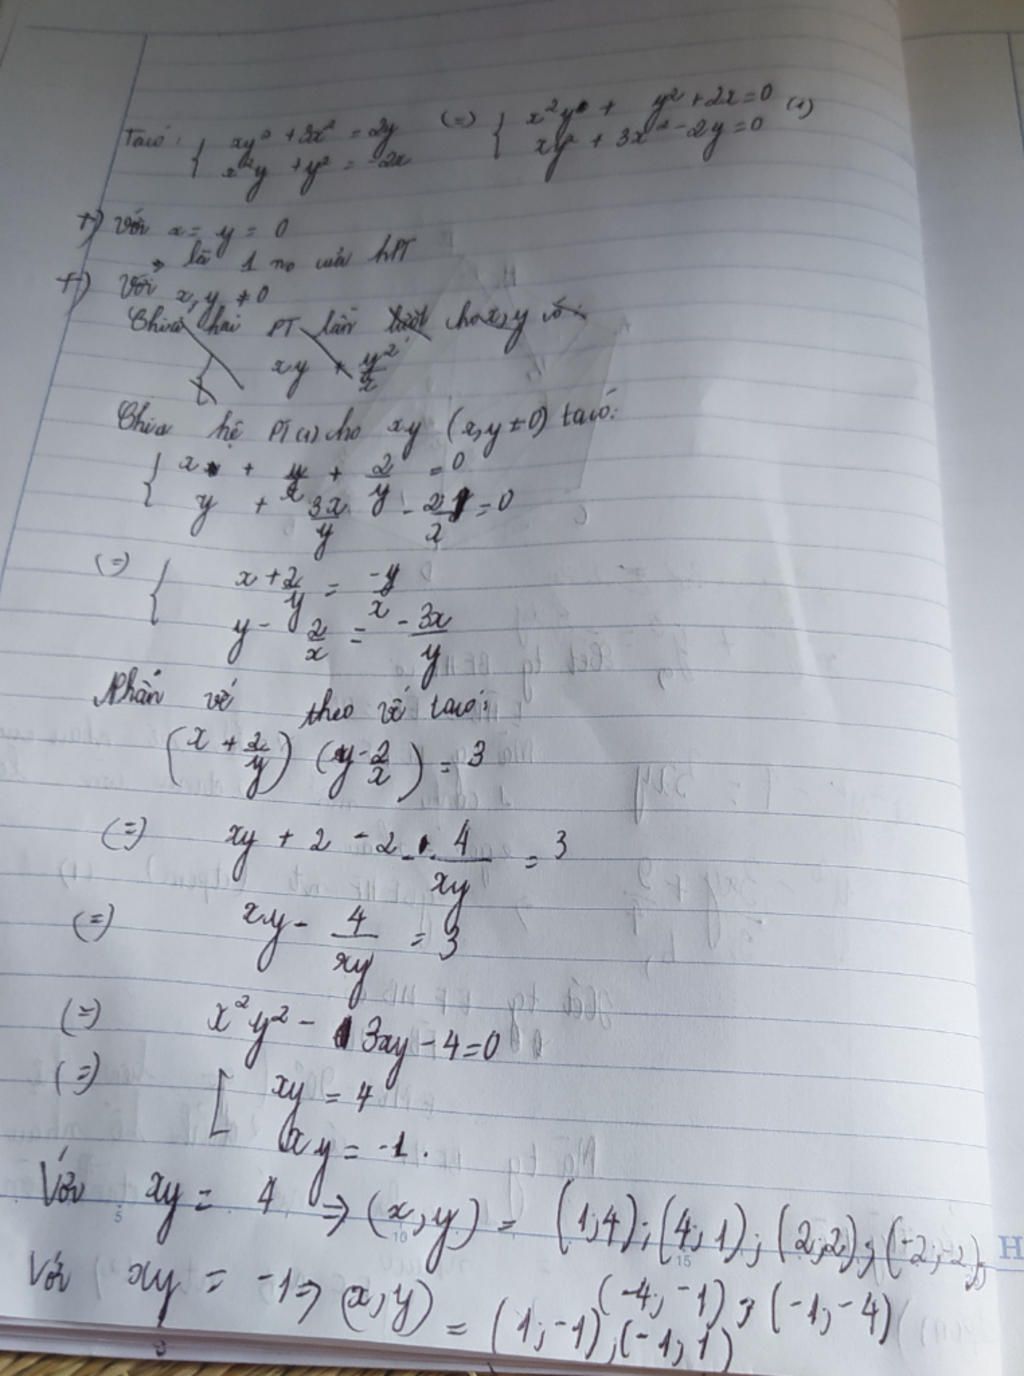 Ta có: { xy² + 3x² = 2y (=) { x²y + y² + 2x = 0 (1)
x²y + y² = -2x xy² + 3x² - 2y = 0
+) Với x = y = 0
=> là 1 no của hPT
+) Với x, y ≠ 0
Chia hai PT lần lượt cho x, y có:
{ xy + y²/x
Chia hệ PT (1) cho xy (x, y ≠ 0) ta có:
{ x + y/x + 2/y = 0
y + 3x/y - 2/x = 0
(=) { x + 2/y = -y/x
y - 2/x = -3x/y
Nhân vế theo vế ta có:
(x + 2/y) (y - 2/x) = 3
(=) xy + 2 - 2 - 4/xy = 3
(=) xy - 4/xy = 3
(=) x²y² - 3xy - 4 = 0
(=) [ xy = 4
xy = -1.
Với xy = 4 => (x, y) = (1; 4); (4; 1); (2; 2); (-2; -2);
(-4; -1); (-1; -4)
Với xy = -1 => (x, y) = (1; -1); (-1; 1)
H